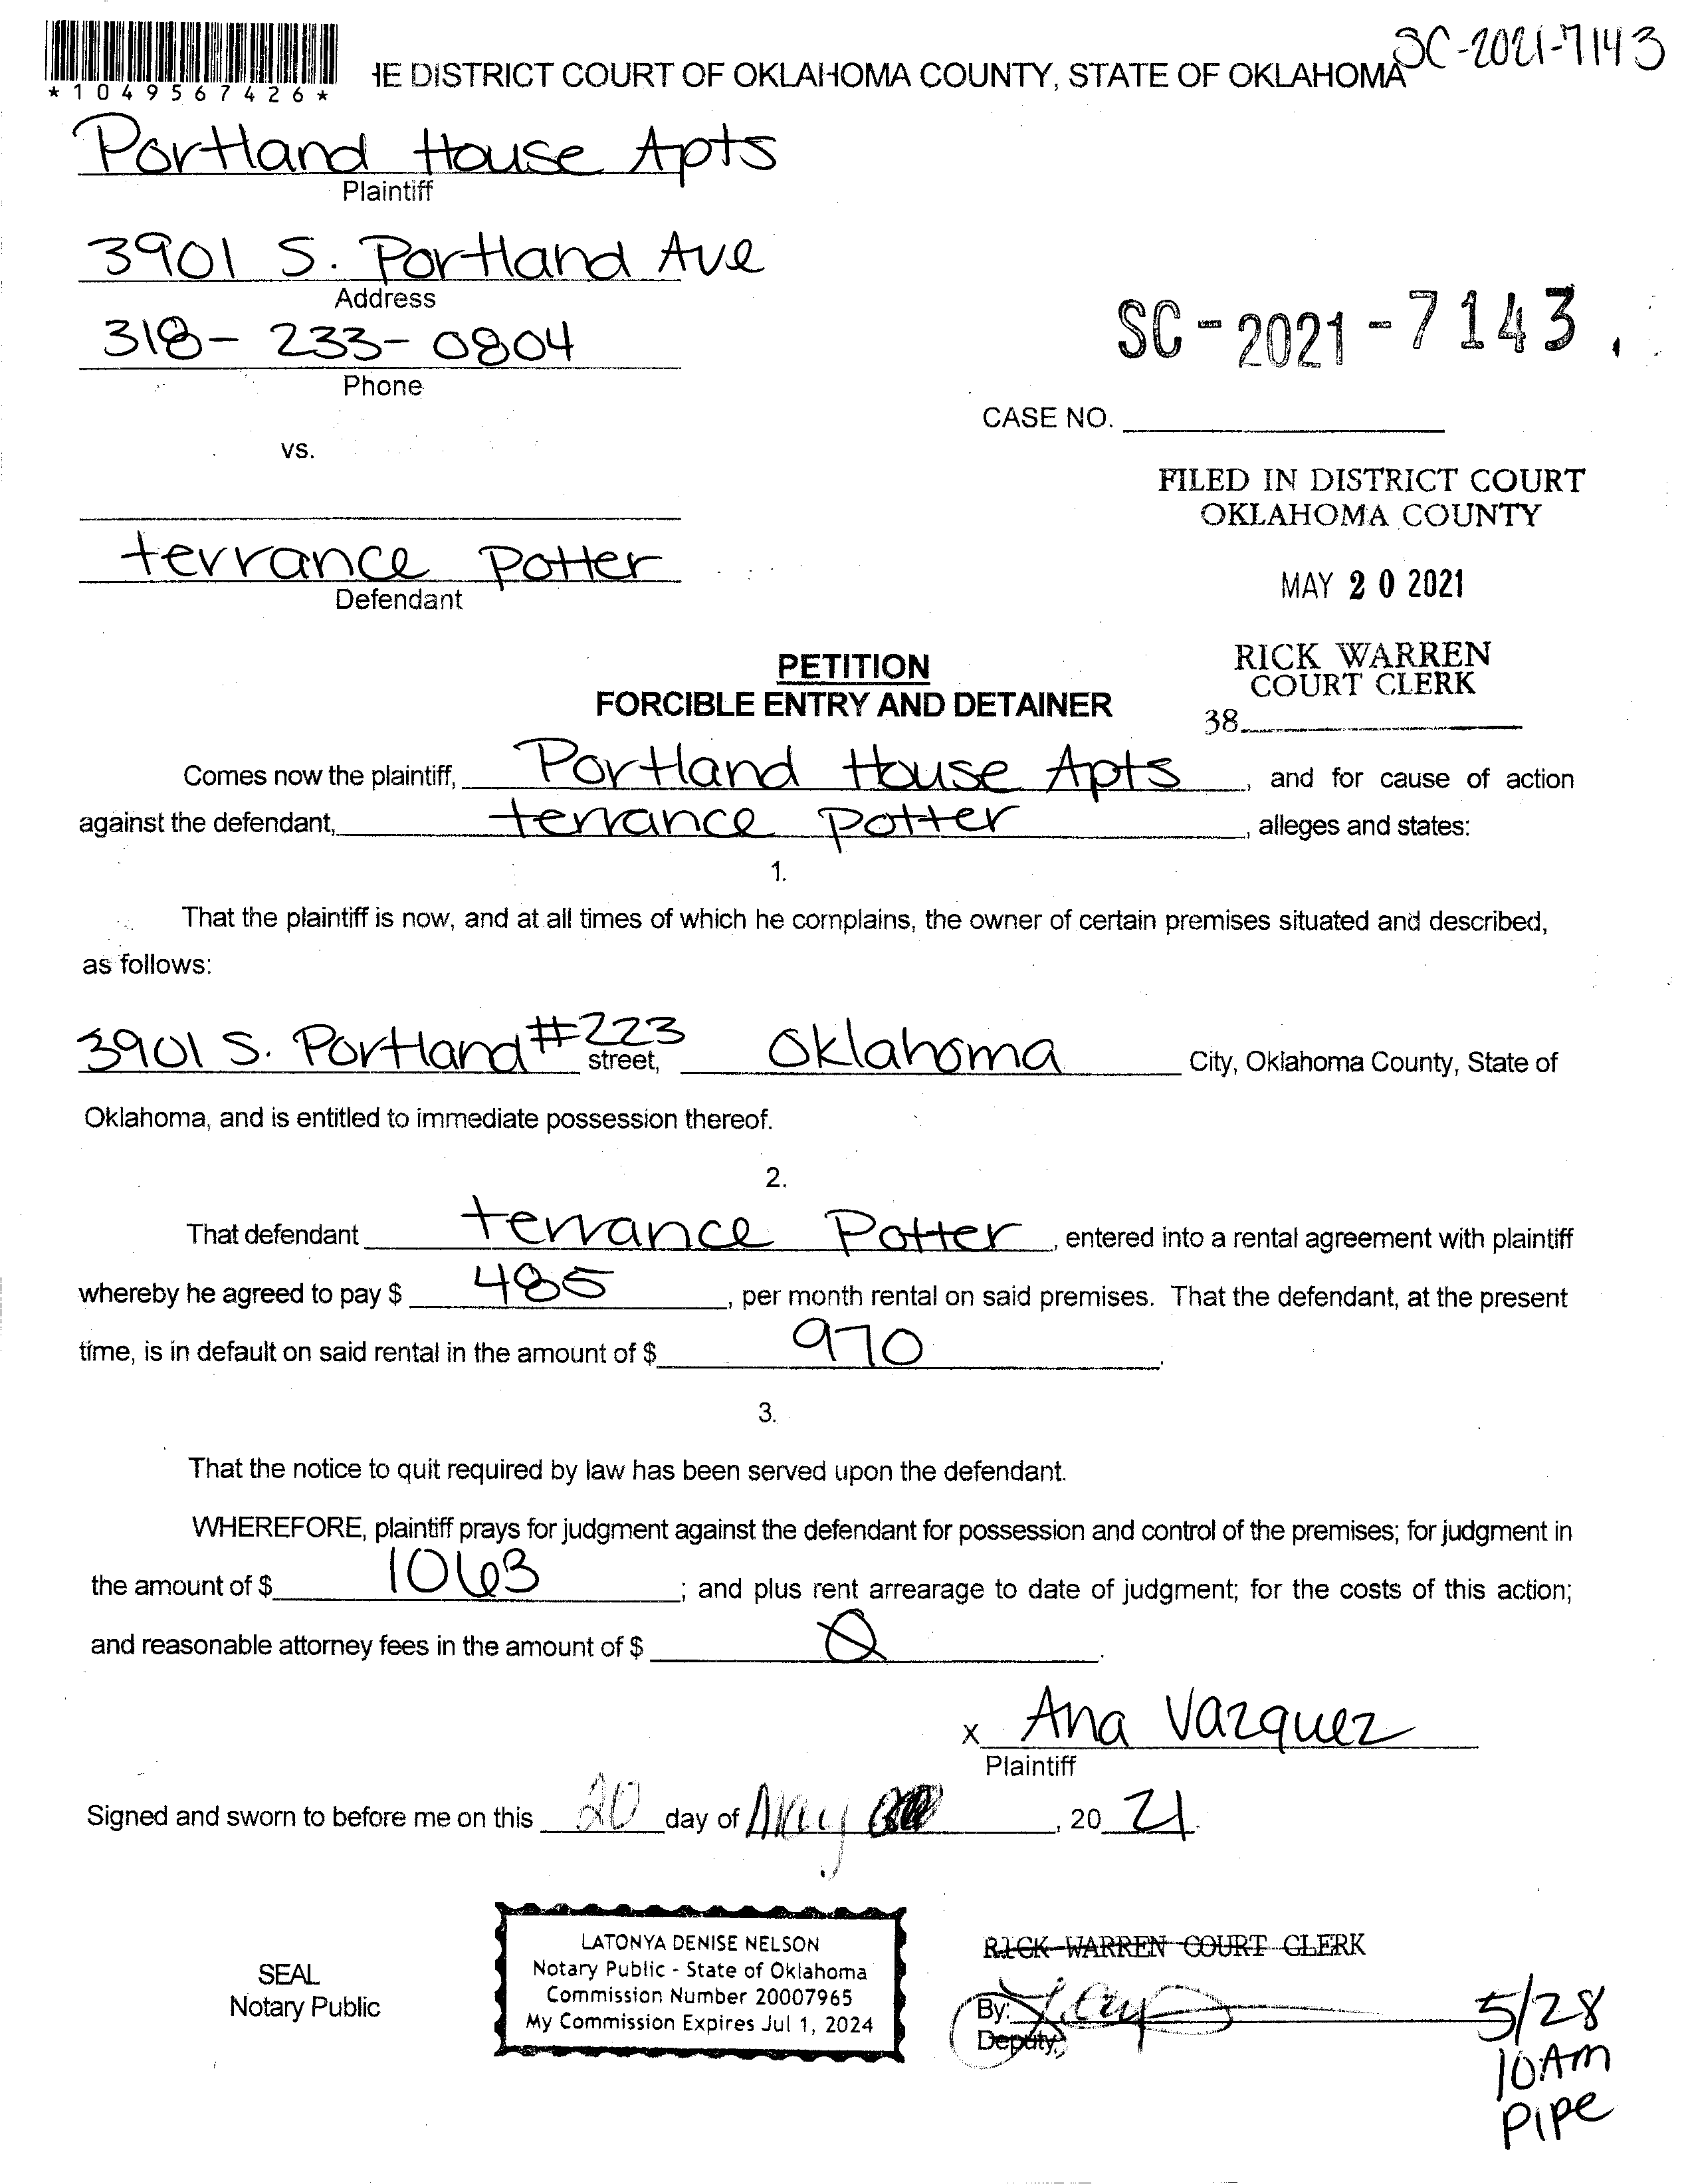 SC-2021-7143
*1049567426*
HE DISTRICT COURT OF OKLAHOMA COUNTY, STATE OF OKLAHOMA
Portland House Apts
Plaintiff
3901 S. Portland Ave
Address
318-233-0804
Phone
SC-2021-7143
CASE NO.
vs.
FILED IN DISTRICT COURT
OKLAHOMA COUNTY
terrance Potter
Defendant
MAY 20 2021
RICK WARREN
COURT CLERK
38
PETITION
FORCIBLE ENTRY AND DETAINER
Comes now the plaintiff, Portland House Apts, and for cause of action
against the defendant, terrance potter, alleges and states:
1.
That the plaintiff is now, and at all times of which he complains, the owner of certain premises situated and described,
as follows:
3901 S. Portland #223 street, Oklahoma City, Oklahoma County, State of
Oklahoma, and is entitled to immediate possession thereof.
2.
That defendant terrance Potter, entered into a rental agreement with plaintiff
whereby he agreed to pay $ 485, per month rental on said premises. That the defendant, at the present
time, is in default on said rental in the amount of $ 970.
3.
That the notice to quit required by law has been served upon the defendant.
WHEREFORE, plaintiff prays for judgment against the defendant for possession and control of the premises; for judgment in
the amount of $ 1063; and plus rent arrearage to date of judgment; for the costs of this action;
and reasonable attorney fees in the amount of $ 0.
x Ana Vazquez
Plaintiff
Signed and sworn to before me on this 20 day of May, 20 21.
SEAL
Notary Public
LATONYA DENISE NELSON
Notary Public - State of Oklahoma
Commission Number 20007965
My Commission Expires Jul 1, 2024
RICK WARREN COURT CLERK
By:
Deputy
5/28
10AM
PIPE